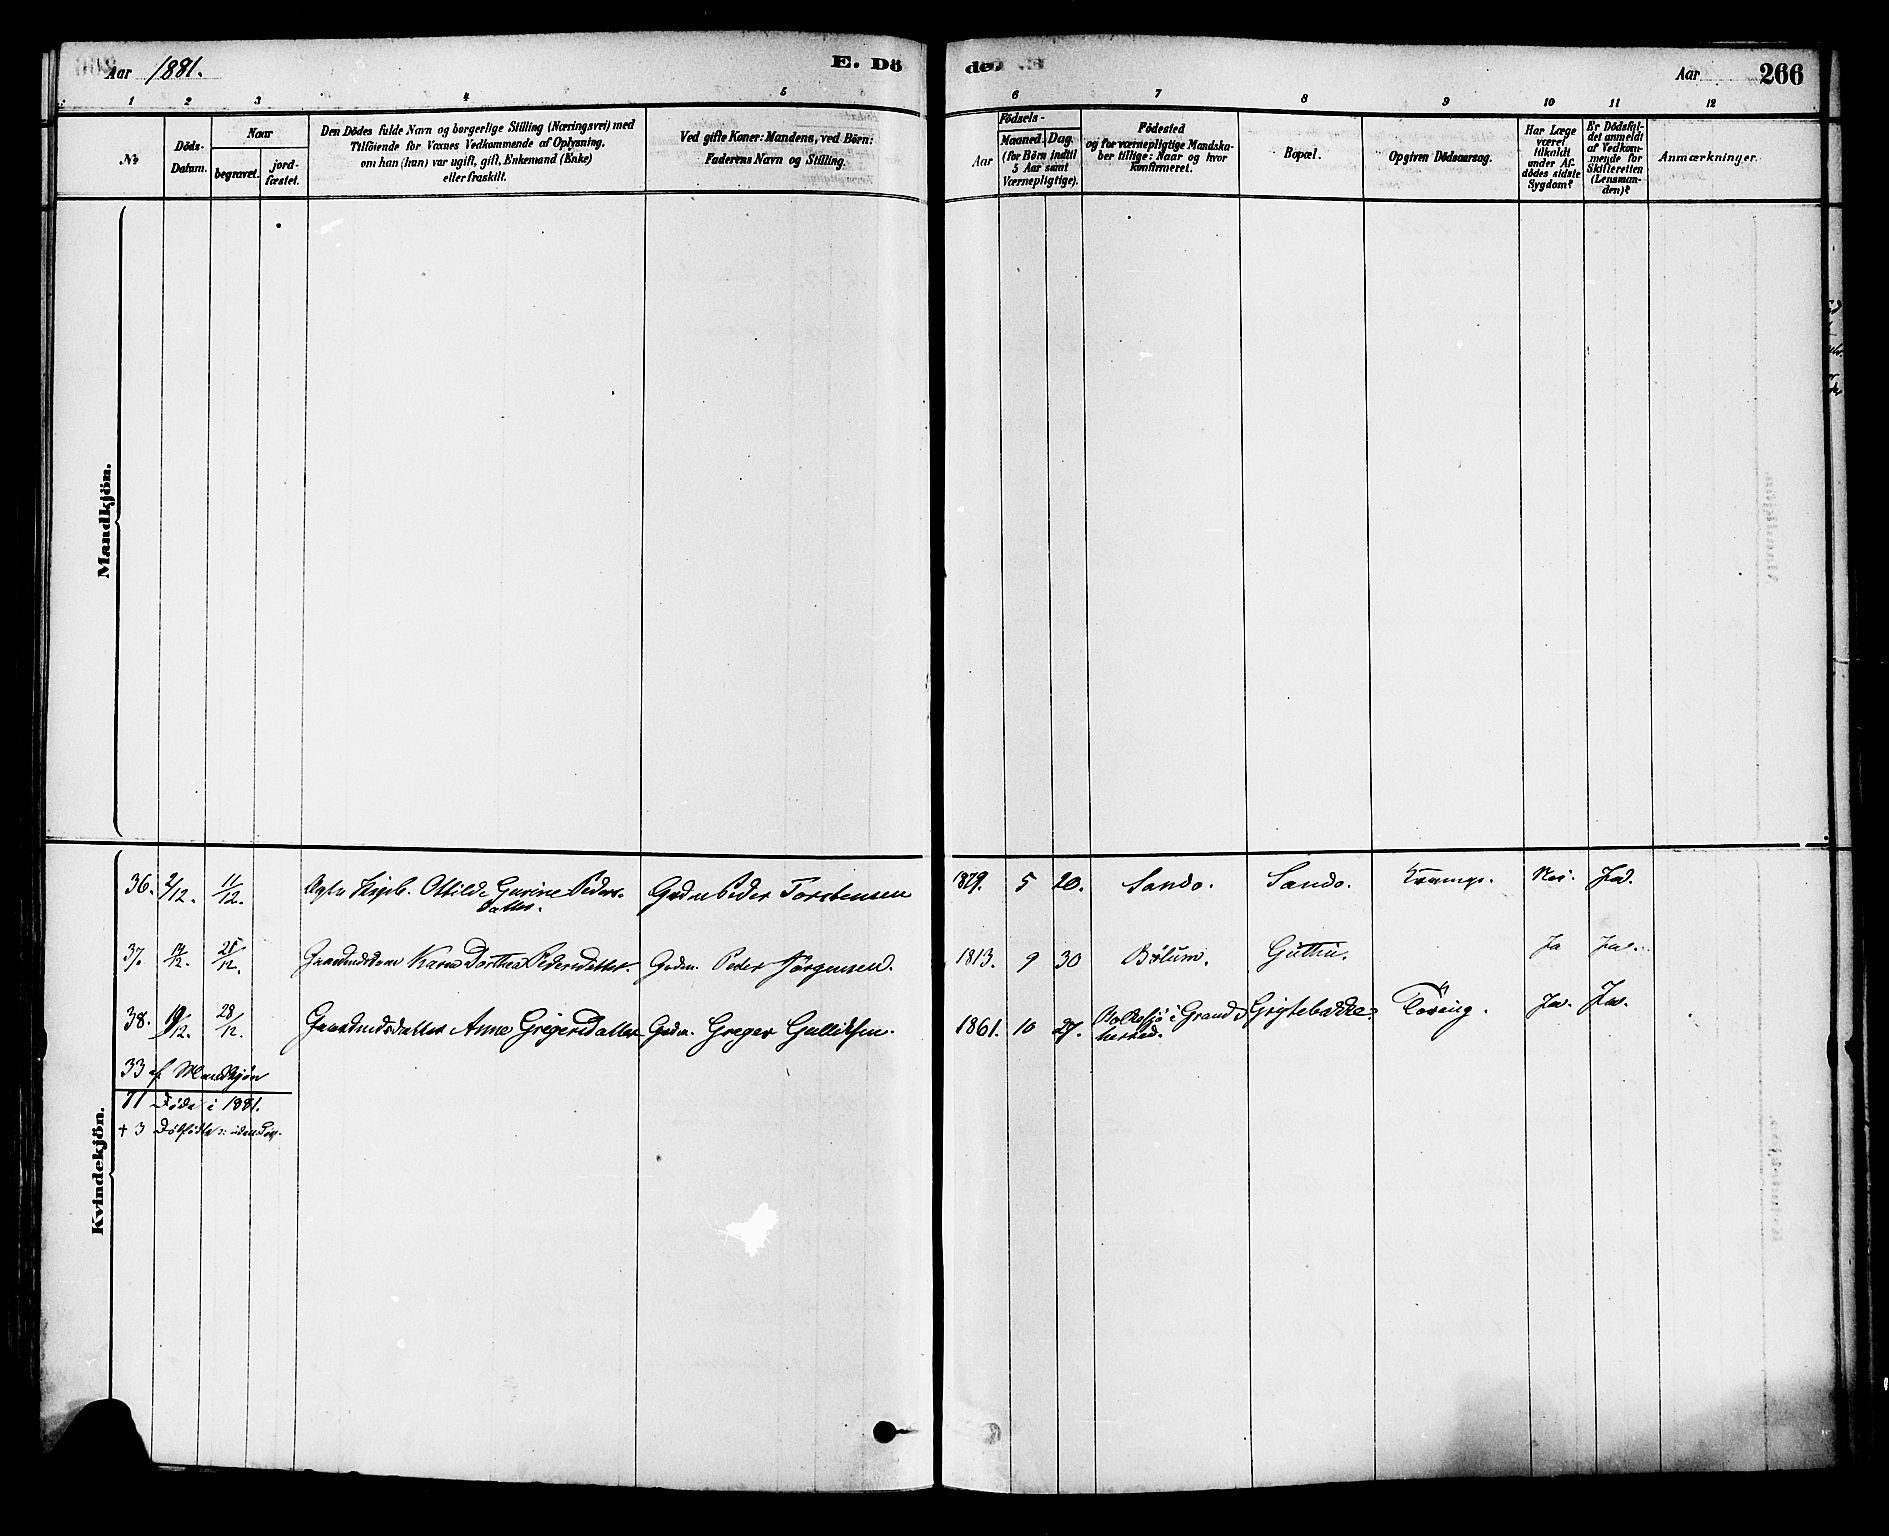 Aar 1881.
E. Dö
de.
Aar
266
1 2 3 4 5 6 7 8 9 10 11 12
No
Döds-
Datum.
Naar
begravet.
jord-
fæstet.
Den Dödes fulde Navn og borgerlige Stilling (Næringsvei) med
Tilföiende for Voxnes Vedkommende af Oplysning,
om han (hun) var ugift, gift, Enkemand (Enke)
eller fraskilt.
Ved gifte Koner: Mandens, ved Börn:
Faderens Navn og Stilling.
Födsels-
Aar
Maaned.
Dag.
(for Börn indtil
5 Aar samt
Værnepligtige).
Födested
og for værnepligtige Mandska-
ber tillige: Naar og hvor
Konfirmeret.
Bopæl.
Opgiven Dödsaarsag.
Har Læge
været
tilkaldt
under Af-
dödes sidste
Sygdom?
Er Dödsfal-
det anmeldt
af Vedkom-
mende for
Skifteretten
(Lensman-
den)?
Anmærkninger.
Mandkjön.
Kvindekjön.
36. 2/12. 11/12. Ottilde Gurine Peders- Peder Torstensen 1879. 5 20. Sando. Sando. Nei. Ja.
datter.
37. 14/12. 21/12. Karen Dorthea Pedersdatter. Gadm. Peder Jörgensen. 1813. 9 30 Bölum. Guthu. Ja Ja.
38. 19/12. 28/12. Gaardmdsdatter Anne Gregersdatter Gadm. Greger Gullichsen. 1861. 10 27. Bolkesjö i Grand- Grytebakke. Tæring. Ja. Ja.
herred.
33 af Mandkjön
71 Döde i 1881.
+ 3 Dödfödte